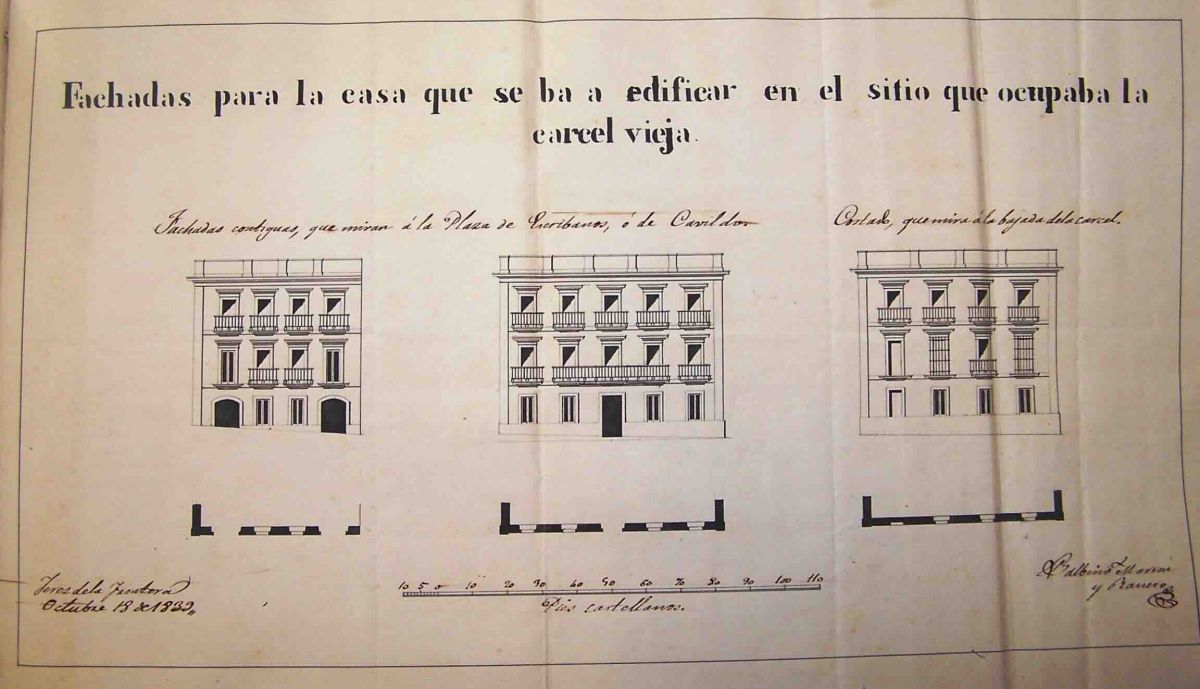 Fachadas para la casa que se ba a edificar en el sitio que ocupaba la
carcel vieja.
Fachadas contiguas, que miran á la Plaza de Escribanos, ó de Cavildo
Costado, que mira á la bajada de la carcel.
10 5 0 10 20 30 40 50 60 70 80 90 100 110
Pies castellanos.
Jerez de la Frontera
Octubre 18 de 1839,,
Balbino Marron
y Ranero